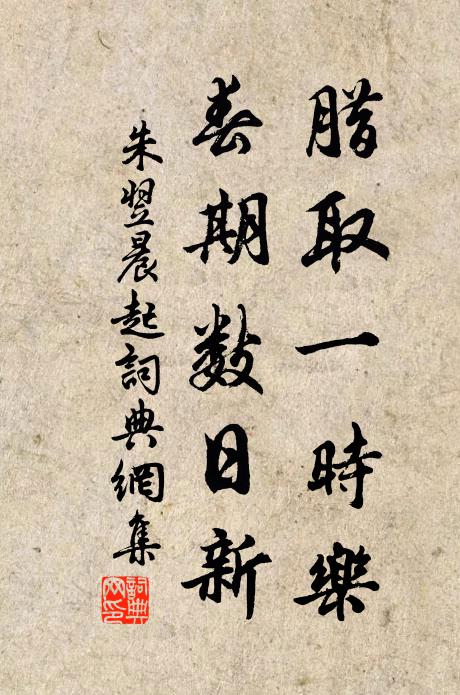 腊取一時樂
春期數日新
朱翌晨起詞典網集
詞典網印